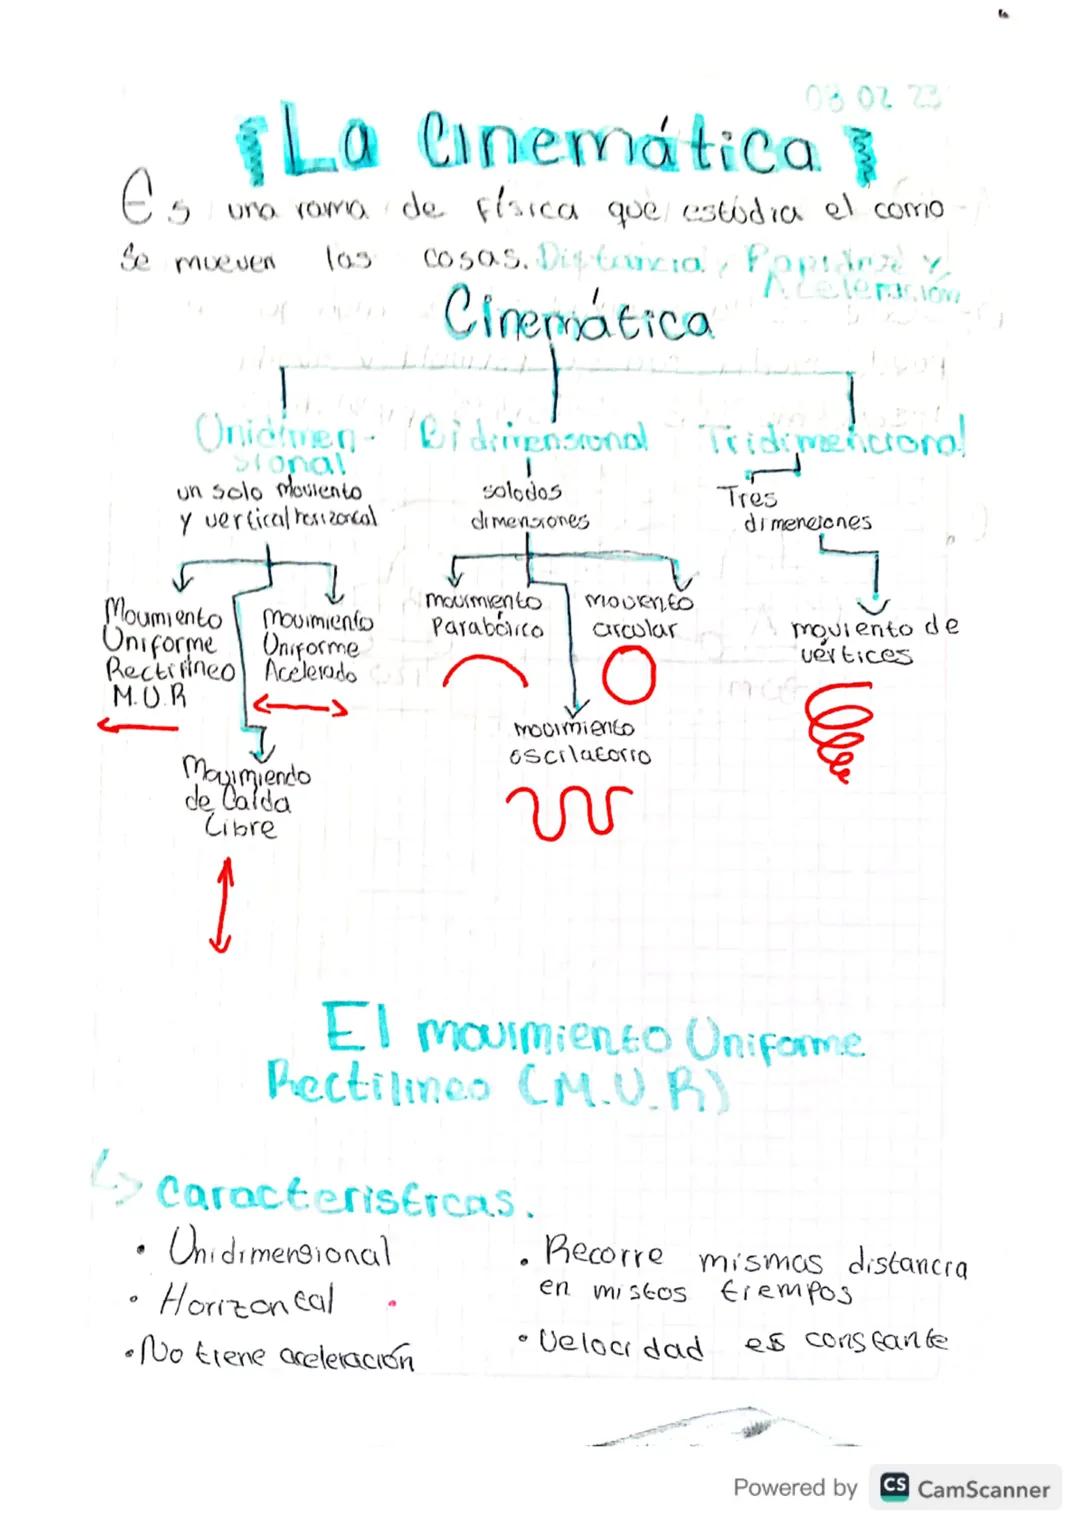 03 02 23
La Cinemática
Es una rama de física que estúdia el como
se mueven las cosas. Distancia, Rapidez y
Aceleración
Cinemática
Unidimen-
sional
un solo Moviento
y vertical horizontal
Movmiento
Uniforme
Rectilíneo
M.U.R
Movimiento
Uniforme
Acelerado
Movimiendo
de Caida
Libre
Bidimensional
solo dos
dimensiones
movimiento
Parabólico
moviento
circular
movimiento
oscilatorio
Tridimencional
Tres
dimenciones
moviento de
vértices
El movimiento Uniforme
Rectilineo (M.U.R)
Caracteristicas.
• Unidimensional
• Horizontal
• No tiene aceleración
• Recorre mismas distancia
en mistos tiempos
• Velocidad es constante
Powered by CS CamScanner